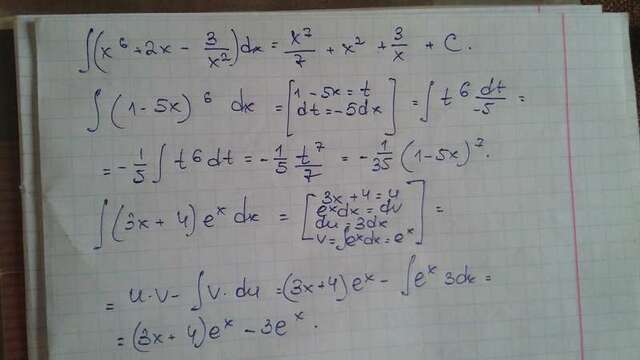 ∫(x⁶ + 2x - 3/x²)dx = x⁷/7 + x² + 3/x + C.
∫(1-5x)⁶ dx = [1-5x = t
dt = -5dx] = ∫ t⁶ dt/-5 =
= -1/5 ∫ t⁶ dt = -1/5 t⁷/7 = -1/35 (1-5x)⁷.
∫(3x+4)eˣ dx = [3x+4 = u
eˣdx = dv
du = 3dx
v = ∫eˣdx = eˣ] =
= u·v - ∫v·du = (3x+4)eˣ - ∫eˣ 3dx =
= (3x+4)eˣ - 3eˣ.